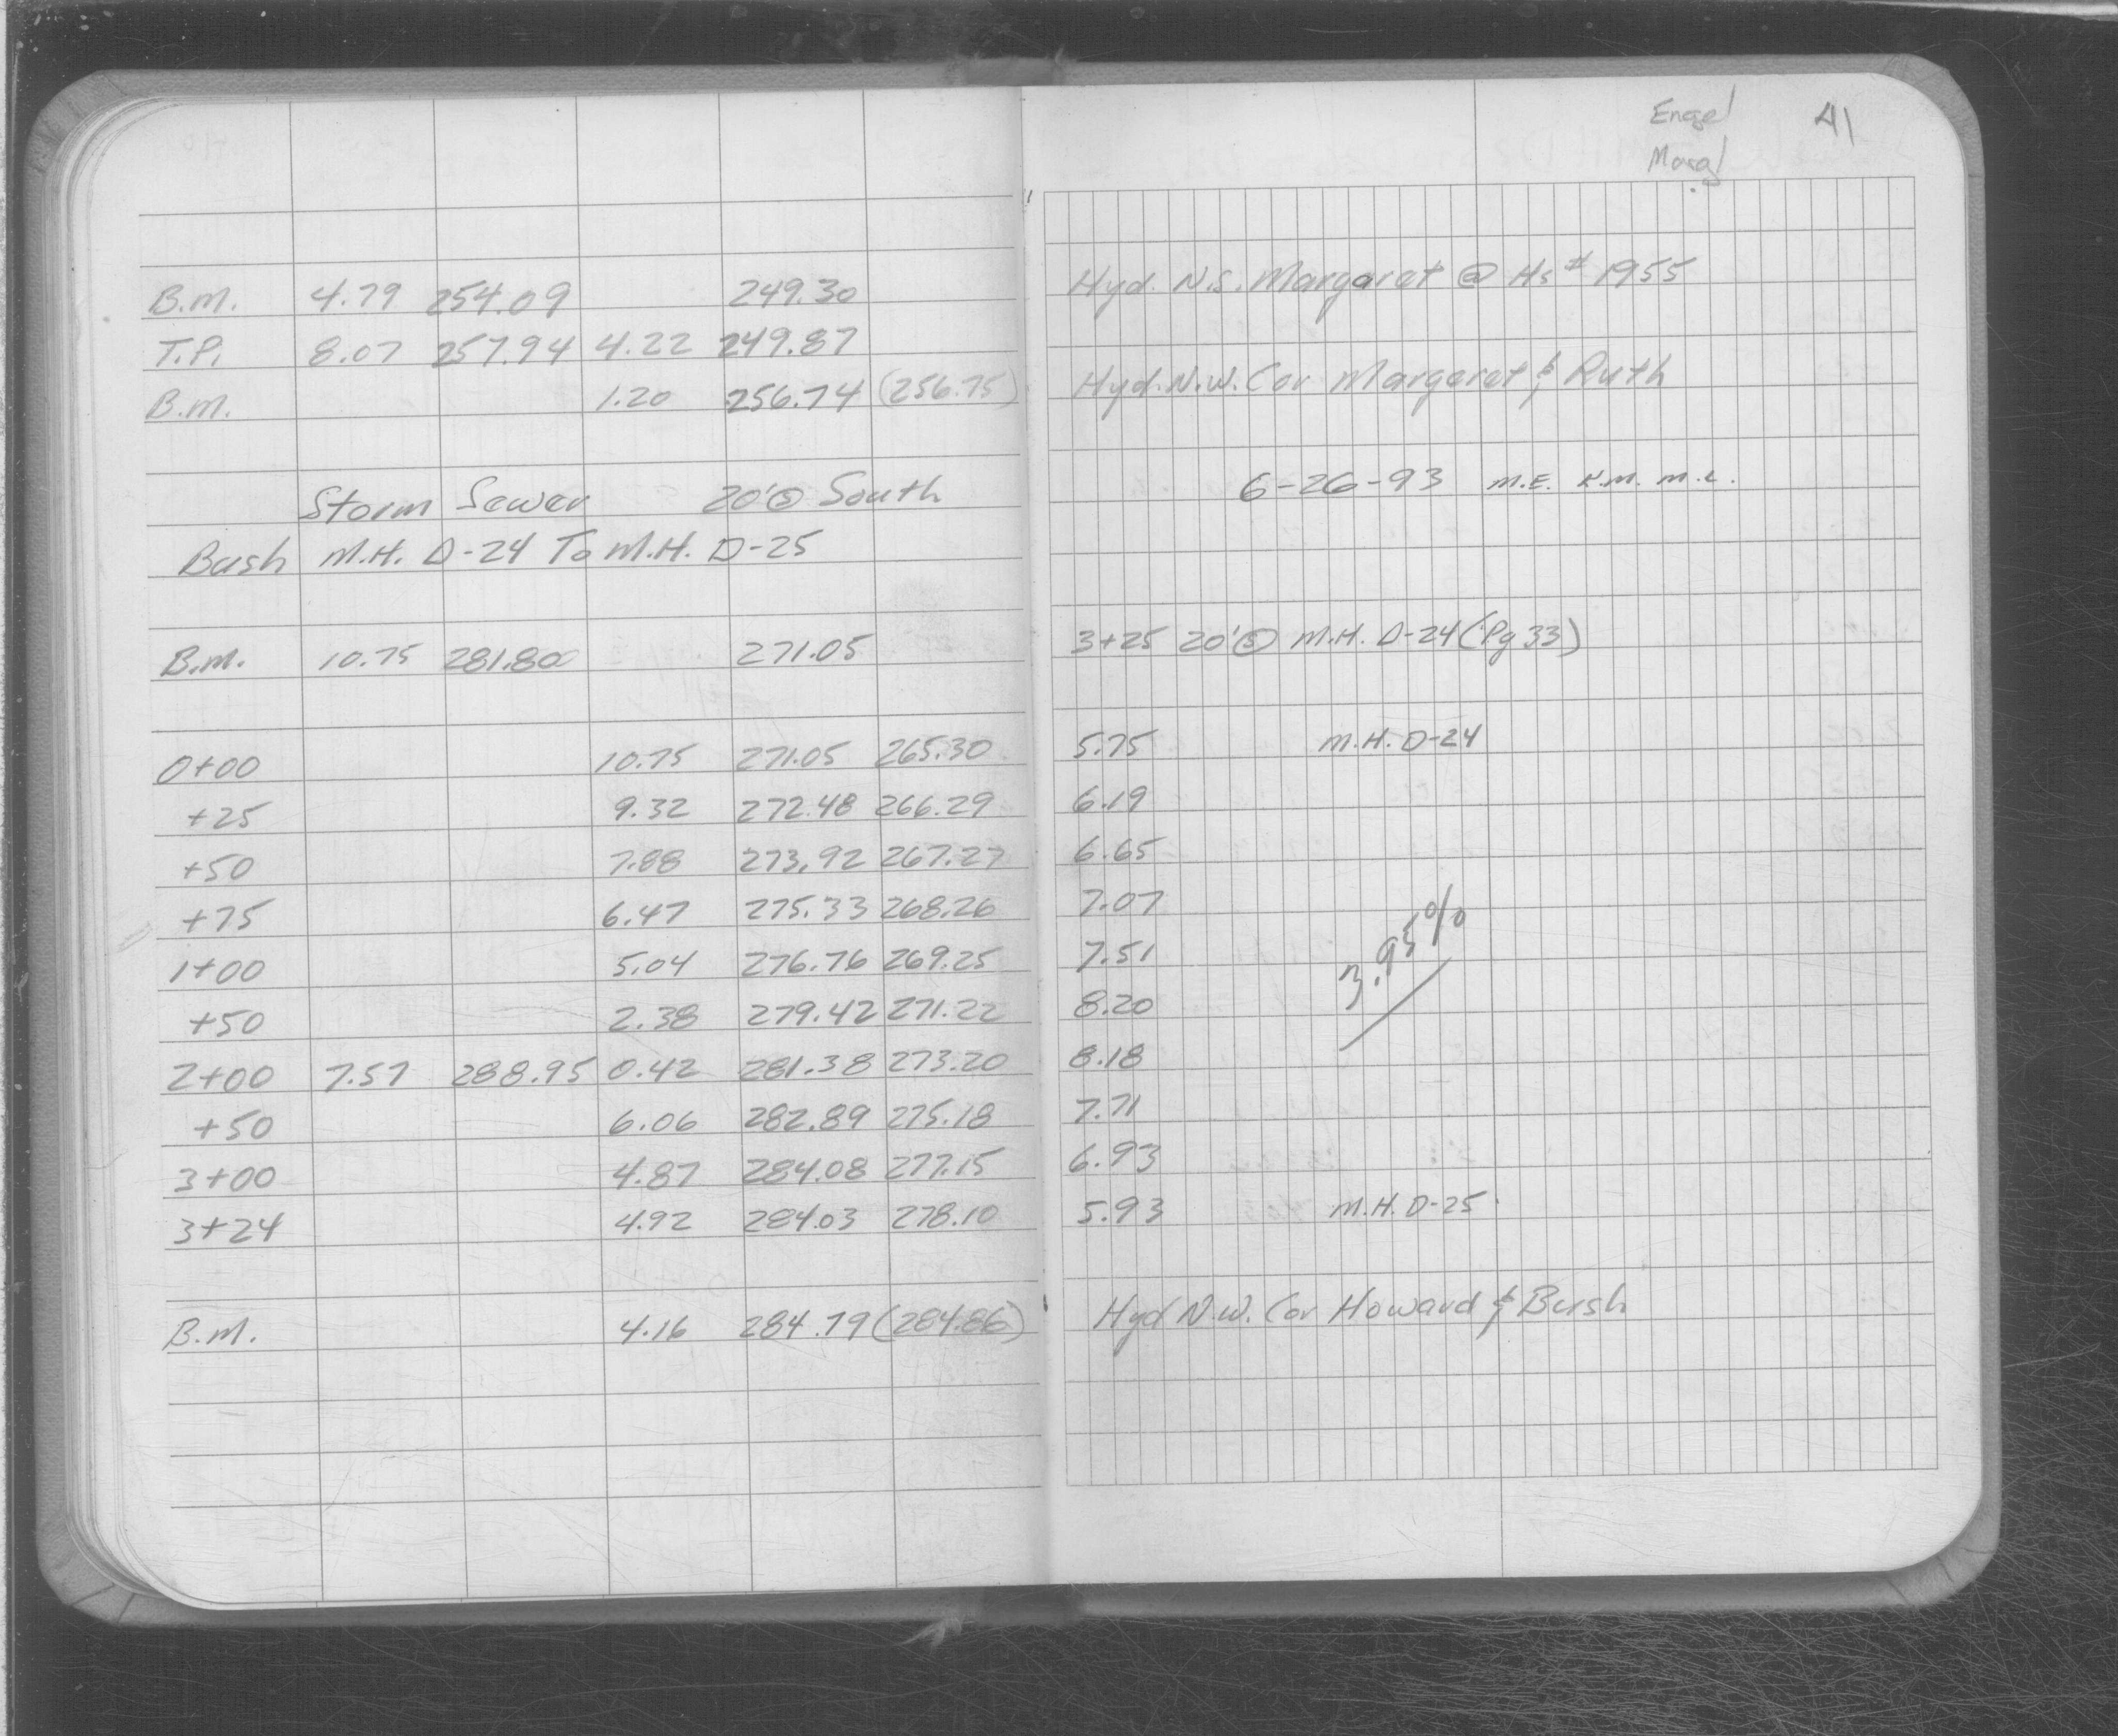 Engel 41
B.M. 4.79 254.09 249.30 Hyd. N.S. Margaret @ Hs # 1955
T.P. 8.07 257.94 4.22 249.87
B.M. 1.20 256.74 (256.75) Hyd. N.W. Cor Margaret & Ruth
Storm Sewer 20' Ⓢ South 6-26-93 M.E. K.M. M.L.
Bush M.H. D-24 To M.H. D-25
B.M. 10.75 281.80 271.05 3+25 20' Ⓢ M.H. D-24 (Pg 33)
0+00 10.75 271.05 265.30 5.75 M.H. D-24
+25 9.32 272.48 266.29 6.19
+50 7.88 273.92 267.27 6.65
+75 6.47 275.33 268.26 7.07
1+00 5.04 276.76 269.25 7.51
3.95%
+50 2.38 279.42 271.22 8.20
2+00 7.57 288.95 0.42 281.38 273.20 8.18
+50 6.06 282.89 275.18 7.71
3+00 4.87 284.08 277.15 6.93
3+24 4.92 284.03 278.10 5.93 M.H. D-25
B.M. 4.16 284.79 (284.86) Hyd N.W. Cor Howard & Bush